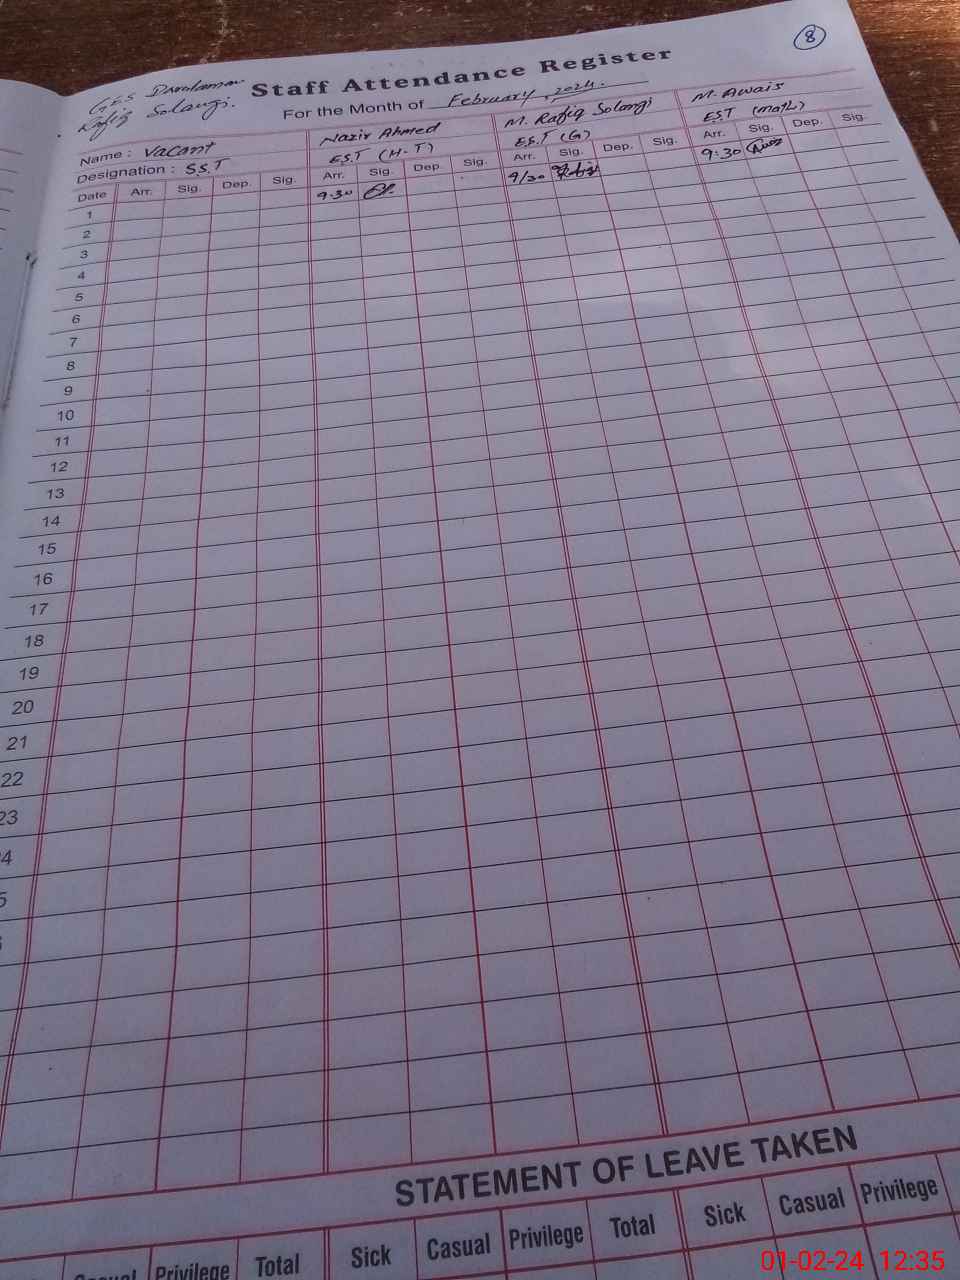 8
GES
Rafiq Solangi.
Staff Attendance Register
For the Month of February, 2024.
Name : Vacant Nazir Ahmed M. Rafiq Solangi M. Awais
Designation : S.S.T E.S.T (H.T) E.S.T (G) E.S.T (math)
Date Arr. Sig. Dep. Sig. Arr. Sig. Dep. Sig. Arr. Sig. Dep. Sig. Arr. Sig. Dep. Sig.
1 9.30 9/30 9.30
2
3
4
5
6
7
8
9
10
11
12
13
14
15
16
17
18
19
20
21
22
23
4
5
STATEMENT OF LEAVE TAKEN
Casual Privilege Total Sick Casual Privilege Total Sick Casual Privilege
01-02-24 12:35